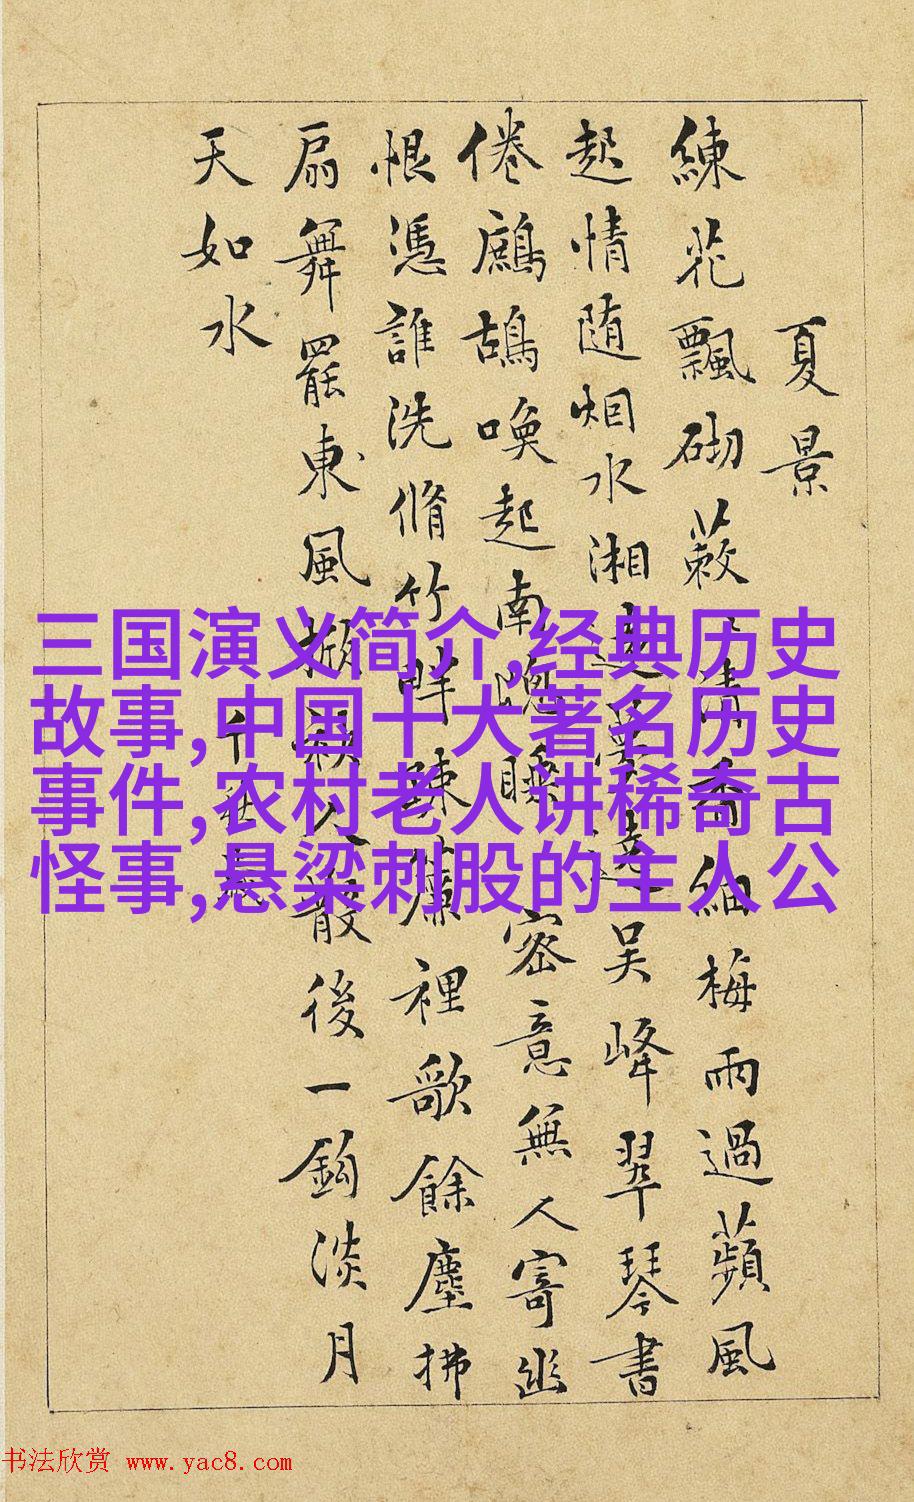 夏景
練花飄砌蔌清香細梅雨過蘋風
起情随烟水湘遠夢遶吳峰翠琴書
倦鷓鴣喚起南窓睡密意無人寄幽
恨憑誰洗脩竹畔疎簾裡歌餘塵拂
扇舞罷東風袂人散後一鈎淡月
天如水
千秋歲
三国演义简介,经典历史
故事,中国十大著名历史
事件,农村老人讲稀奇古
怪事,悬梁刺股的主人公
书法欣赏 www.yac8.com